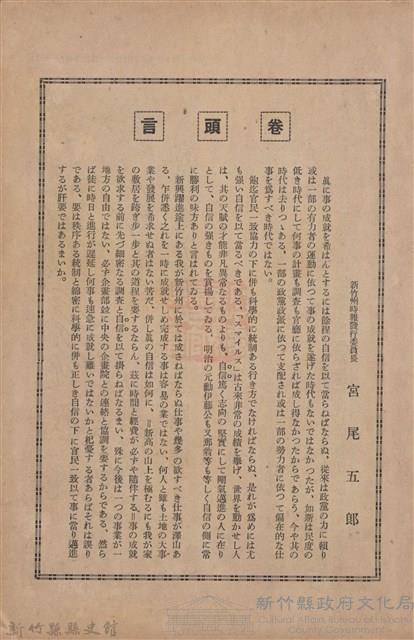 卷頭言
新竹州時報發行委員長
宮尾五郎
眞に事の成就を希はんとするには餘程の自信を以て當らねばならぬ、從來は政黨の力に頼り
或は一部の有力者の運動に依つて事の成就を遂げた時代もないではなかつたが、如斯は民度の
低き時代にして何事の計畫も調査も官廳に依らざれば成し得なかつたからであらう、今や其の
時代は去りつゝある、一部の政黨政派に依つて支配され或は一部の勢力者に依つて偏在的な仕
事を爲すべき時代ではない。
飽迄官民一致協力の下に併も科學的に統制ある行き方でなければならぬ、是れが爲めには尤
も强い自信を以て當るべきである、「スマイルス」は古來非常の成績を擧げ、世界を動かせし人
は、其の天賦の才能非凡異常なるものよりも、自信篤く志向の堅實にして剛氣邁進の人に在り
として、自信の强きものを賞揚してゐる、明治の元勳伊藤公も又那翁等も等しく自信の側に常
に勝利の味方ありと言はれてゐる。
新興躍進途上にある我が新竹州に於ては成さねばならぬ仕事や幾多の欲すべき仕事が澤山あ
る、乍併悉くこれを一時に成就せしめ完成する事は容易の業ではない、何人と雖も土地の大事
業や發展を希求せぬ者はない筈だ、併し眞の自信は如何に、=新高の山上を極むるにも我が家
の敷居を跨ぎ步一步と其の道程を要するならん、茲に時間と經費が必ずや隨伴する=事の成就
を欲求する前に先づ細密なる調査と自信を以て掛らねばなるまい、殊に今後は一つの事業が一
地方の自由ではない、必ず企畫部竝に中央の企畫院との連絡と協調を要するからである、然ら
ば徒に時日と進行が遲延し何事も速急に成就し難いではないかと杞憂する者あらばそれは誤り
である、要は秩序ある統制と綿密に科學的に併も正しき自信の下に官民一致以て事に當り邁進
するが肝要ではあるまいか。
新竹縣縣史館
新竹縣政府文化局
Cultural Affairs Bureau of Hsinchu County Government